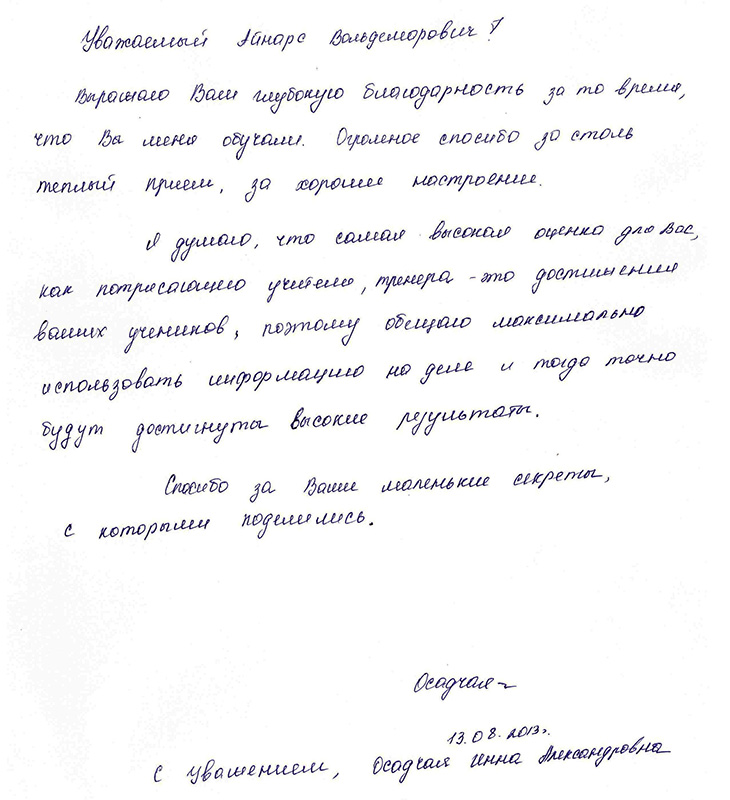 Уважаемый Айнарс Вольдеморович!
Выражаю Вам глубокую благодарность за то время,
что Вы меня обучали. Огромное спасибо за столь
теплый прием, за хорошее настроение.
Я думаю, что самая высокая оценка для Вас,
как потрясающего учителя, тренера - это достижения
ваших учеников, поэтому обещаю максимально
использовать информацию на деле и тогда точно
будут достигнуты высокие результаты.
Спасибо за Ваши маленькие секреты,
с которыми поделились.
Осадчая
13.08.2013г.
С уважением, Осадчая Инна Александровна